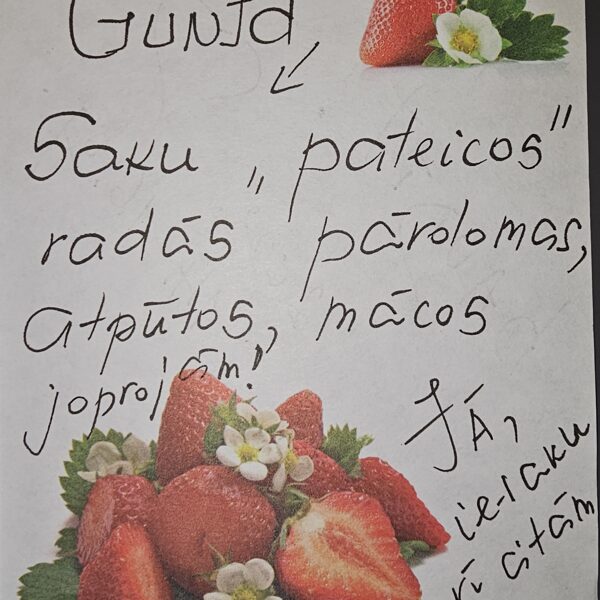 Gunta
Saku „pateicos"
radās pārdomas,
atpūtos, mācos
joprojām!
Jā,
ieslaku
rī citām